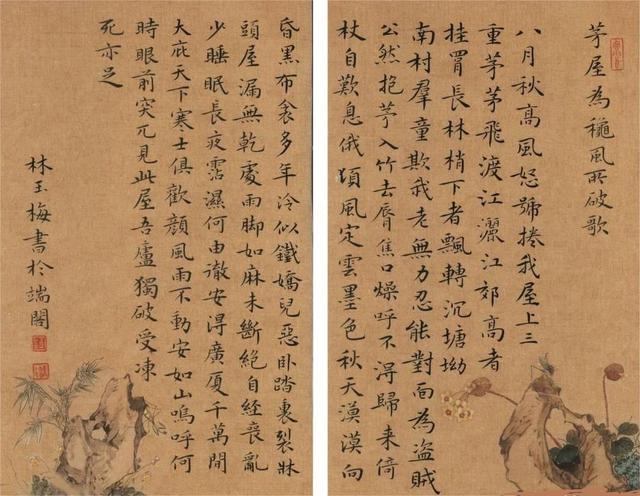 茅屋為穐風所破歌
八月秋高風怒號捲我屋上三
重茅茅飛渡江灑江郊高者
挂罥長林梢下者飄轉沉塘坳
南村羣童欺我老無力忍能對面為盜賊
公然抱茅入竹去脣焦口燥呼不淂歸来倚
杖自歎息俄頃風定雲墨色秋天漠漠向
昏黑布衾多年冷似鐵嬌兒惡卧踏裏裂牀
頭屋漏無乾處雨脚如麻未斷絕自經喪亂
少睡眠長夜霑濕何由徹安得廣厦千萬間
大庇天下寒士俱歡顔風雨不動安如山嗚呼何
時眼前突兀見此屋吾廬獨破受凍
死亦足
林玉梅書於端閣